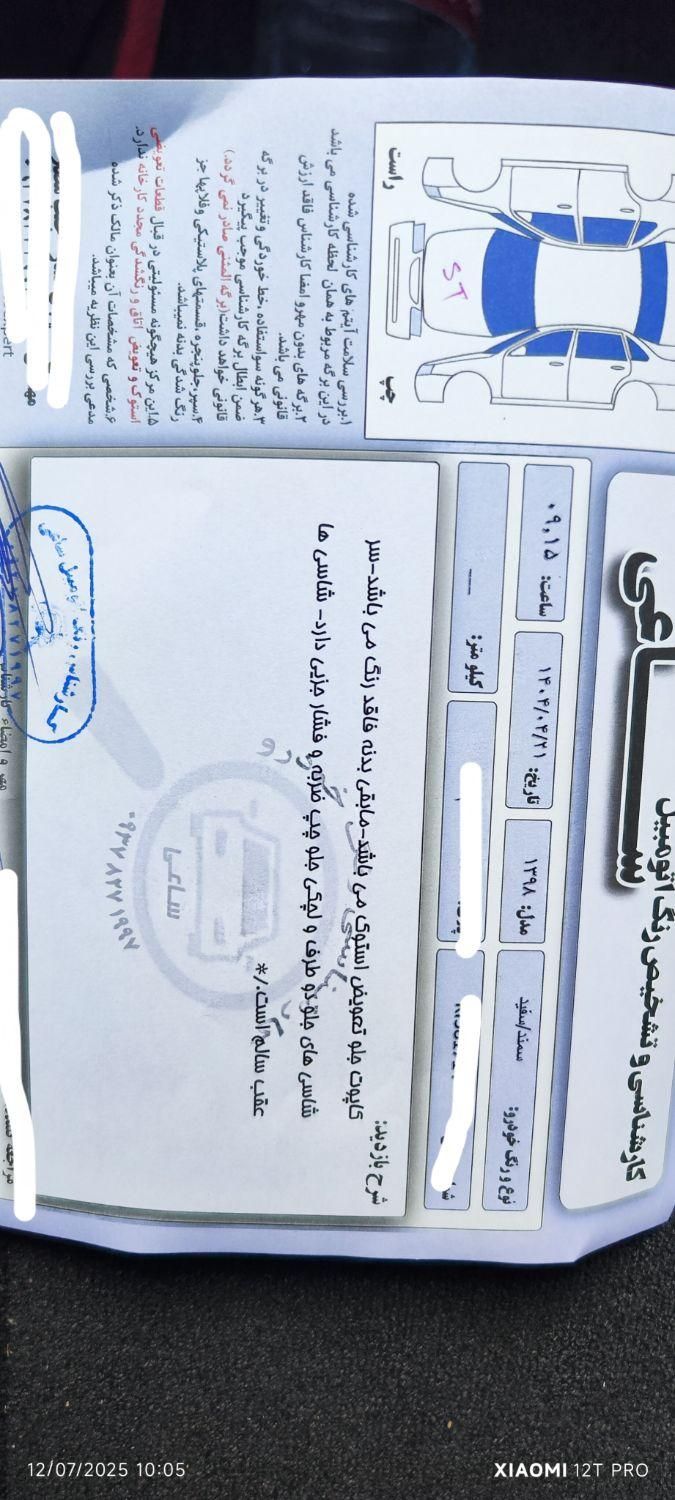 کارشناسی و تشخیص رنگ اتومبیل
ساعی
نوع و رنگ خودرو: سمند/سفید
مدل: ۱۳۹۸
تاریخ: ۱۴۰۴/۰۴/۲۱
ساعت: ۰۹,۱۵
کیلو متر: ---
شرح بازدید:
کاپوت جلو تعویض استوک می باشد-مابقی بدنه فاقد رنگ می باشد-سر
شاسی های جلو دو طرف و لچکی جلو چپ ضربه و فشار جزیی دارد- شاسی ها
عقب سالم است./*
ساعی
۰۹۳۷۸۲۷۱۹۹۷
راست
چپ
ST
۱.بررسی سلامت آیتم های کارشناسی شده
در این برگه مربوط به همان لحظه کارشناسی می باشد
۲.برگه های بدون مهرو امضا کارشناس فاقد ارزش
قانونی می باشد.
۳.هرگونه سواستفاده ،خط خوردگی و تغییر در برگه
ضمن ابطال برگه کارشناسی موجب پیگیرد
قانونی خواهد داشت(برگه المثنی صادر نمی گردد.)
۴.سپر،جلو پنجره ،قسمتهای پلاستیکی وفلاپها جز
رنگ شدگی بدنه نمیباشد.
۵.این مرکز هیچگونه مسئولیتی در قبال قطعات تعویضی
استوک و تعویض اتاق و رنگشدگی مجدد کارخانه ندارد.
۶.شخصی که مشخصات آن بعنوان مالک ذکر شده
مدعی بررسی این نظریه میباشد.
مهر و امضاء کارشناس
12/07/2025 10:05
XIAOMI 12T PRO